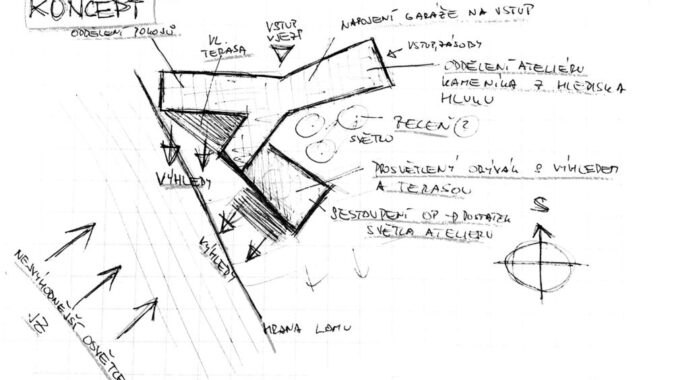 KONCEPT
ODDĚLENÍ POKOJŮ
VL.
TERASA
VSTUP
NAPOJENÍ GARÁŽE NA VSTUP
VSTUP, ZÁSOBY
ODDĚLENÍ ATELIÉRU
KAMENÍKA Z HLEDISKA
HLUKU
ZELEŇ
SVĚTLO
PROSVĚTLENÝ OBÝVÁK S VÝHLEDEM
A TERASOU
SESTOUPENÍ OP → DOSTATEK
SVĚTLA ATELIERU
VÝHLEDY
VÝHLEDY
S
HRANA LOMU
NEJVÝHODNĚJŠÍ
JZ